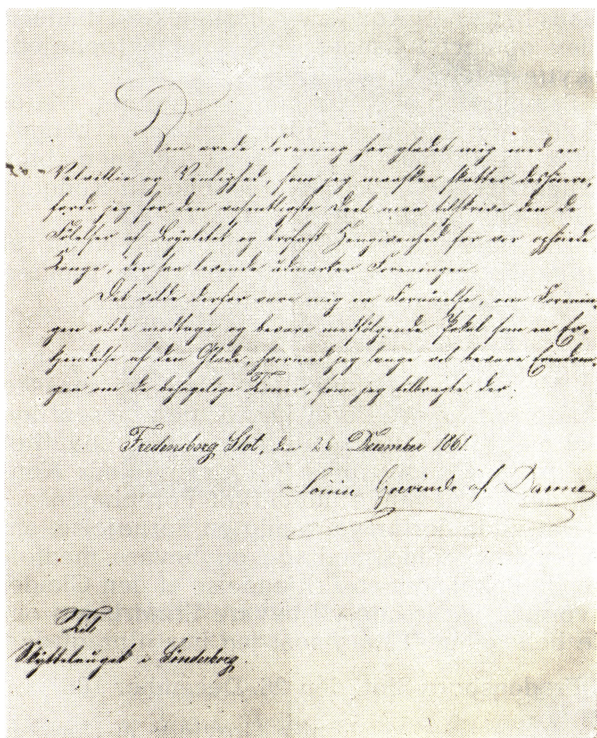 Den ærede Forening har glædet mig med en
Velvillie og Venlighed, som jeg maaskee skatter deshøiere,
fordi jeg for den væsentligste Deel maa tilskrive den de
Følelser af Loyalitet og trofast Hengivenhed for vor ophøiede
Konge, der saa levende udmærker Foreningen.
Det vilde derfor være mig en Fornöielse, om Forenin-
gen vilde modtage og bevare medfølgende Pokal som en Er-
kjendelse af den Glæde, hvormed jeg længe vil bevare Erindrin-
gen om de behagelige Timer, som jeg tilbragte der.
Fredensborg Slot, den 26 December 1861.
Louise Grevinde af Danner
Til
Skyttelauget i Sönderborg.